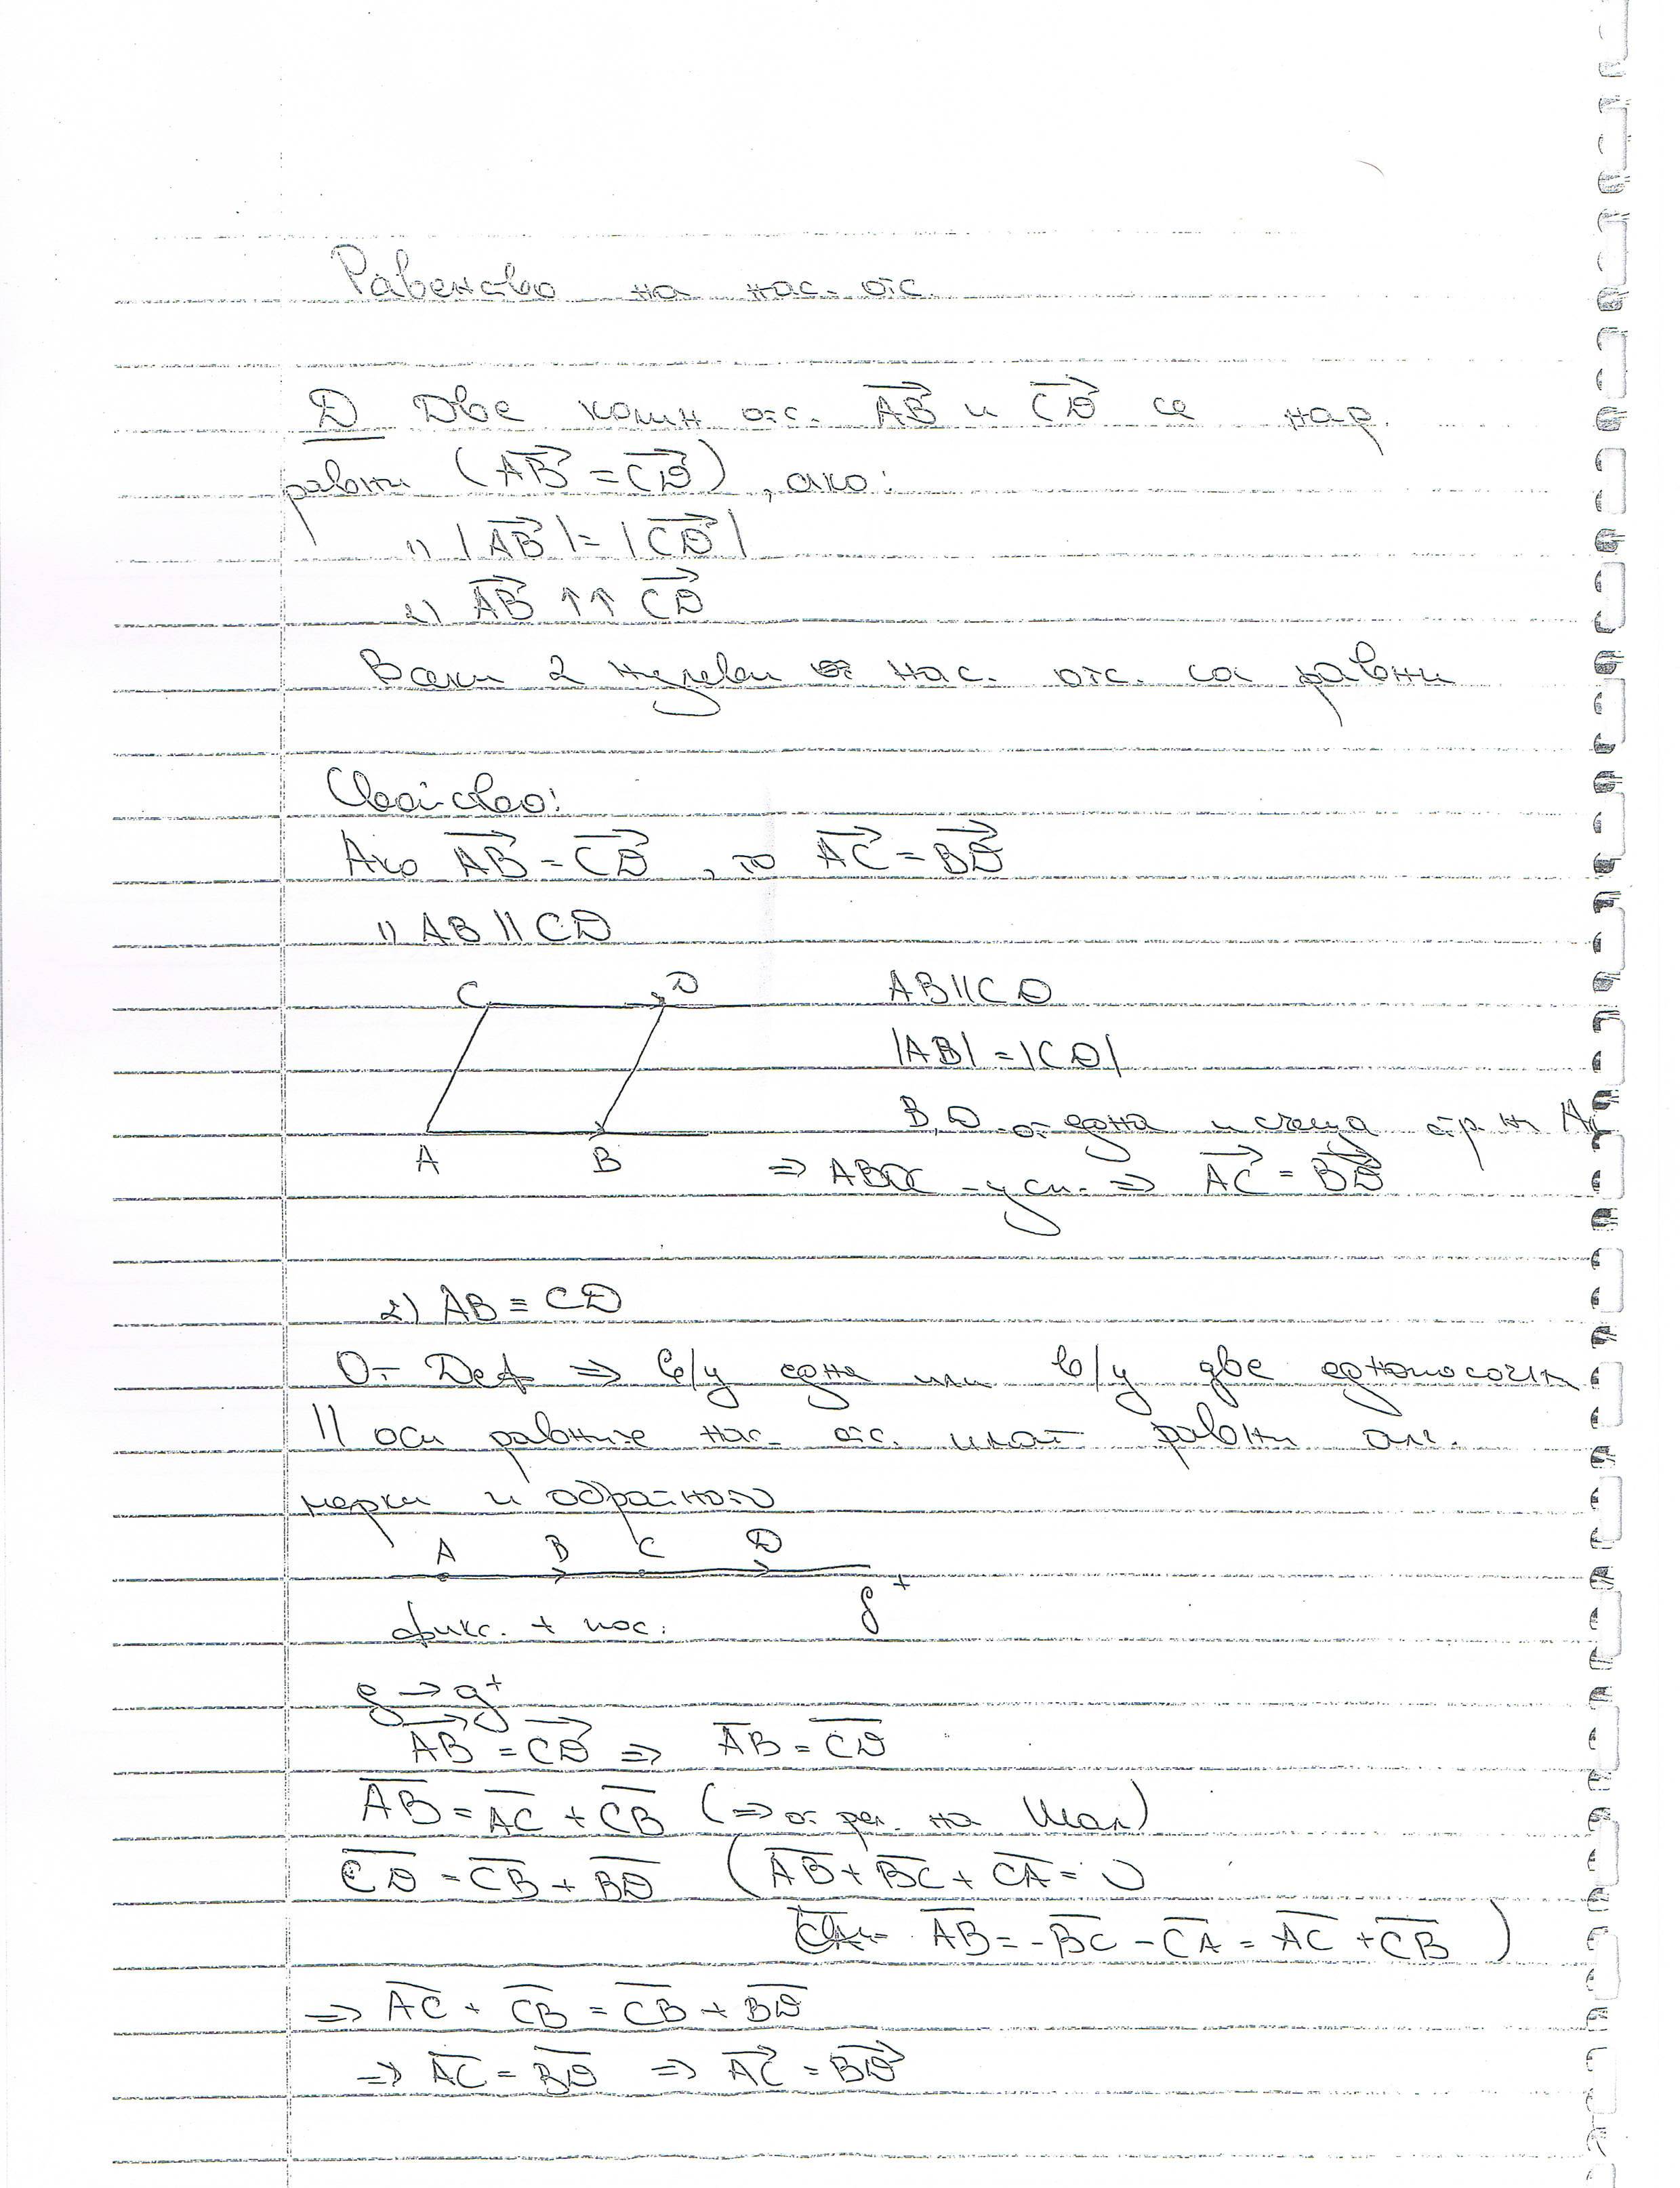 Равенство на нас. отс.
D Две колин отс. AB и CD се нар.
равни (AB = CD), ако:
1) |AB| = |CD|
2) AB ↑↑ CD
Всеки 2 нулеви нас. отс. са равни
Свойство:
Ако AB = CD, то AC = BD
1) AB || CD
C D AB || CD
|AB| = |CD|
B, D от една и съща стр на AC
A B ⇒ ABDC - усп. ⇒ AC = BD
2) AB ≡ CD
От Деф ⇒ в/у една или в/у две еднопосочни
|| оси равните нас. отс. имат равни алг.
мерки и обратното
A B C D
g+
фикс. + пос.
g → g+
AB = CD ⇒ AB = CD
AB = AC + CB (⇒ от рел. на Шал)
CD = CB + BD (AB + BC + CA = 0
AB = -BC - CA = AC + CB)
⇒ AC + CB = CB + BD
⇒ AC = BD ⇒ AC = BD